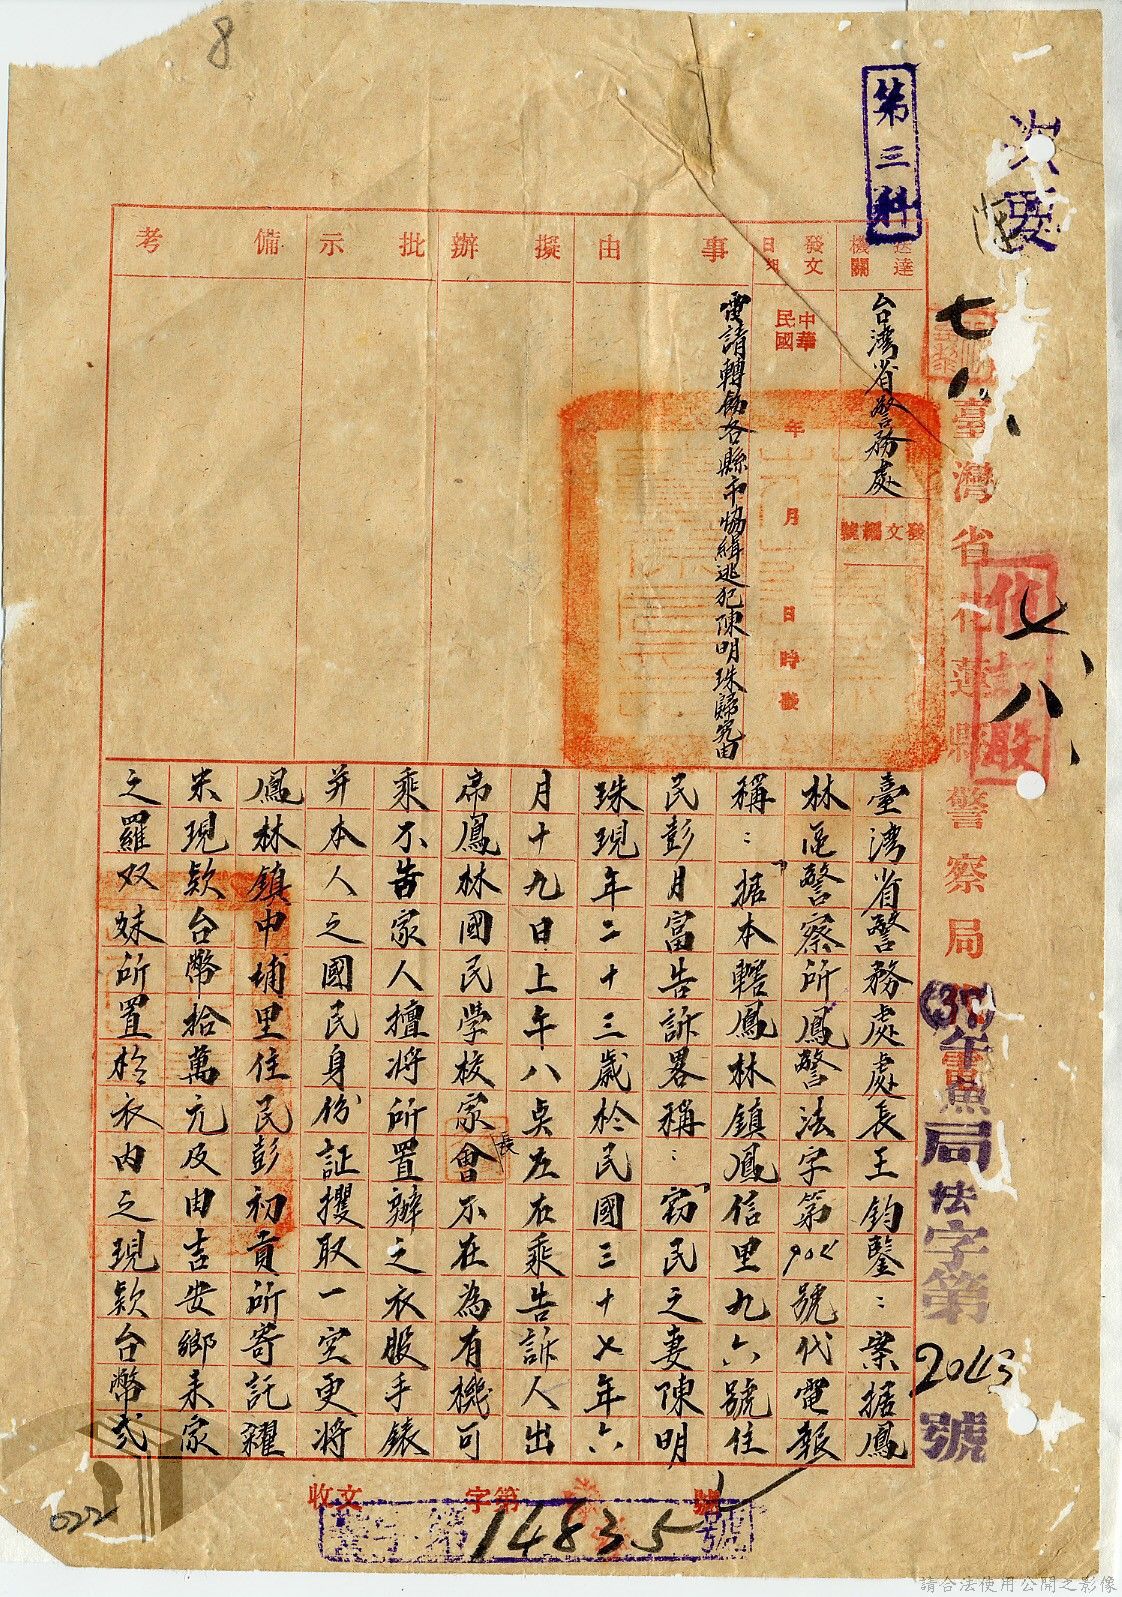 8
第三科
次要
七八
七、八、
臺灣省花蓮縣警察局
(37)午魚局法字第2043號
送達機關
台灣省警務處
發文編號
發文日期
中華民國 年 月 日 時發
事由
電請轉飭各縣市協緝逃犯陳明珠歸究由
擬辦
批示
備考
臺湾省警務處處長王鈞鑒：案据鳳
林區警察所鳳警法字第905號代電報
稱：「据本轄鳳林鎮鳳信里九六號住
民彭月富告訴畧稱：「窃民之妻陳明
珠現年二十三歲於民國三十七年六
月十九日上午八点左右乘告訴人出
席鳳林國民學校家長會不在為有機可
乘不告家人擅將所置辦之衣股手錶
并本人之國民身份証攫取一空更将
鳳林鎮中埔里住民彭初貢所寄託糴
米現欵台幣拾萬元及由吉安鄉来家
之羅双妹所置於衣内之現欵台幣弍
收文 字第 號
字第14835號
022
請合法使用公開之影像